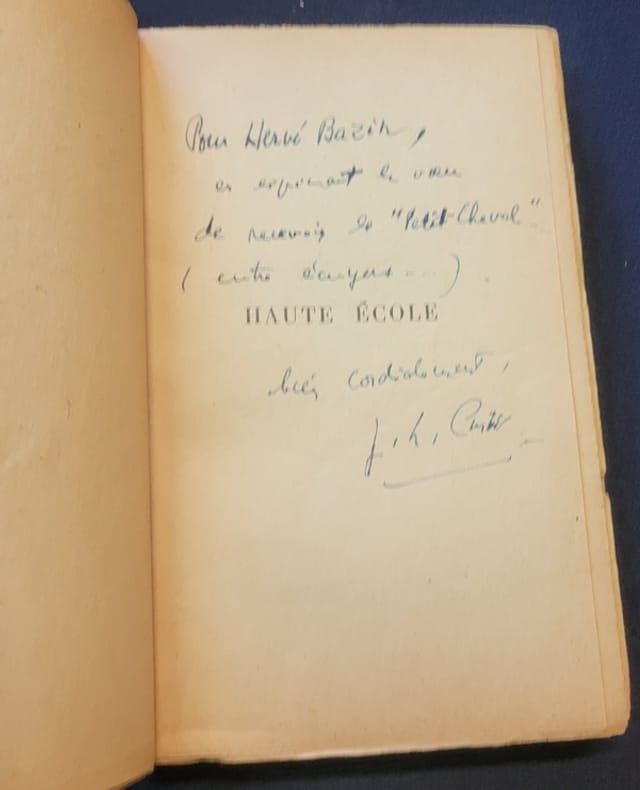 Pour Hervé Bazin,
en exprimant le vœu
de recevoir le "Petit Cheval"
(entre écuyers...)
HAUTE ÉCOLE
bien cordialement,
J. L. Curtis